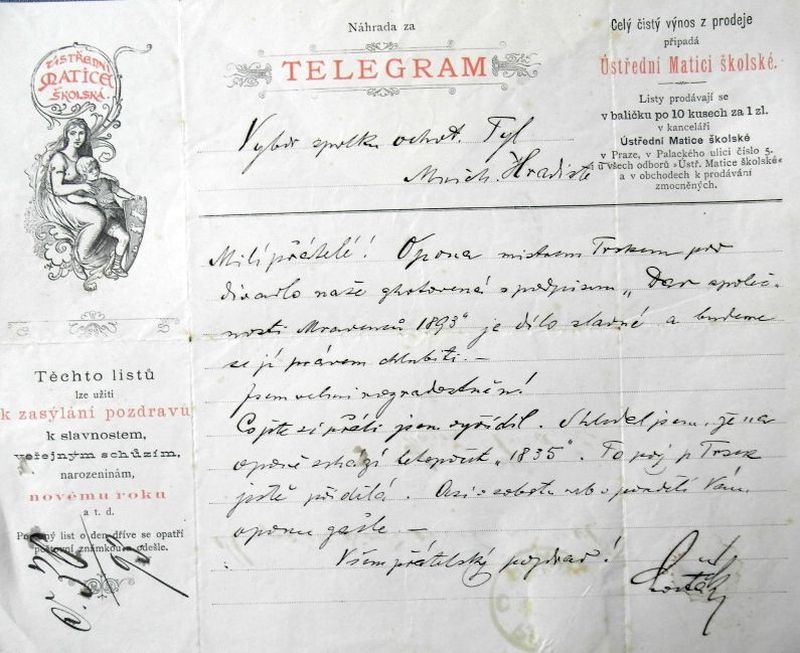 ÚSTŘEDNÍ
MATICE
ŠKOLSKÁ
Náhrada za
TELEGRAM
Celý čistý výnos z prodeje
připadá
Ústřední Matici školské.
Listy prodávají se
v balíčku po 10 kusech za 1 zl.
v kanceláři
Ústřední Matice školské
v Praze, v Palackého ulici číslo 5.
u všech odborů »Ústř. Matice školské«
a v obchodech k prodávání
zmocněných.
Výbor spolku ochot. Tyl
Mnich. Hradiště
Milí přátelé! Opona mistrem Trskem pro
divadlo naše zhotovená s podpisem „Dar společ-
nosti Mravenců 1893" je dílo slavné a budeme
se jí právem chlubiti. —
Jsem velmi rozradostněn!
Co jste si přáli jsem vyřídil. Shledal jsem, že na
oponě schází letopočet „1835". To prý p. Trsek
ještě přidělá. Asi v sobotu nebo v pondělí Vám
oponu zašle —
Všem přátelský pozdrav!
Těchto listů
lze užiti
k zasýlání pozdravů
k slavnostem,
veřejným schůzím,
narozeninám,
novému roku
a t. d.
list o den dříve se opatří
poštovní známkou a odešle.